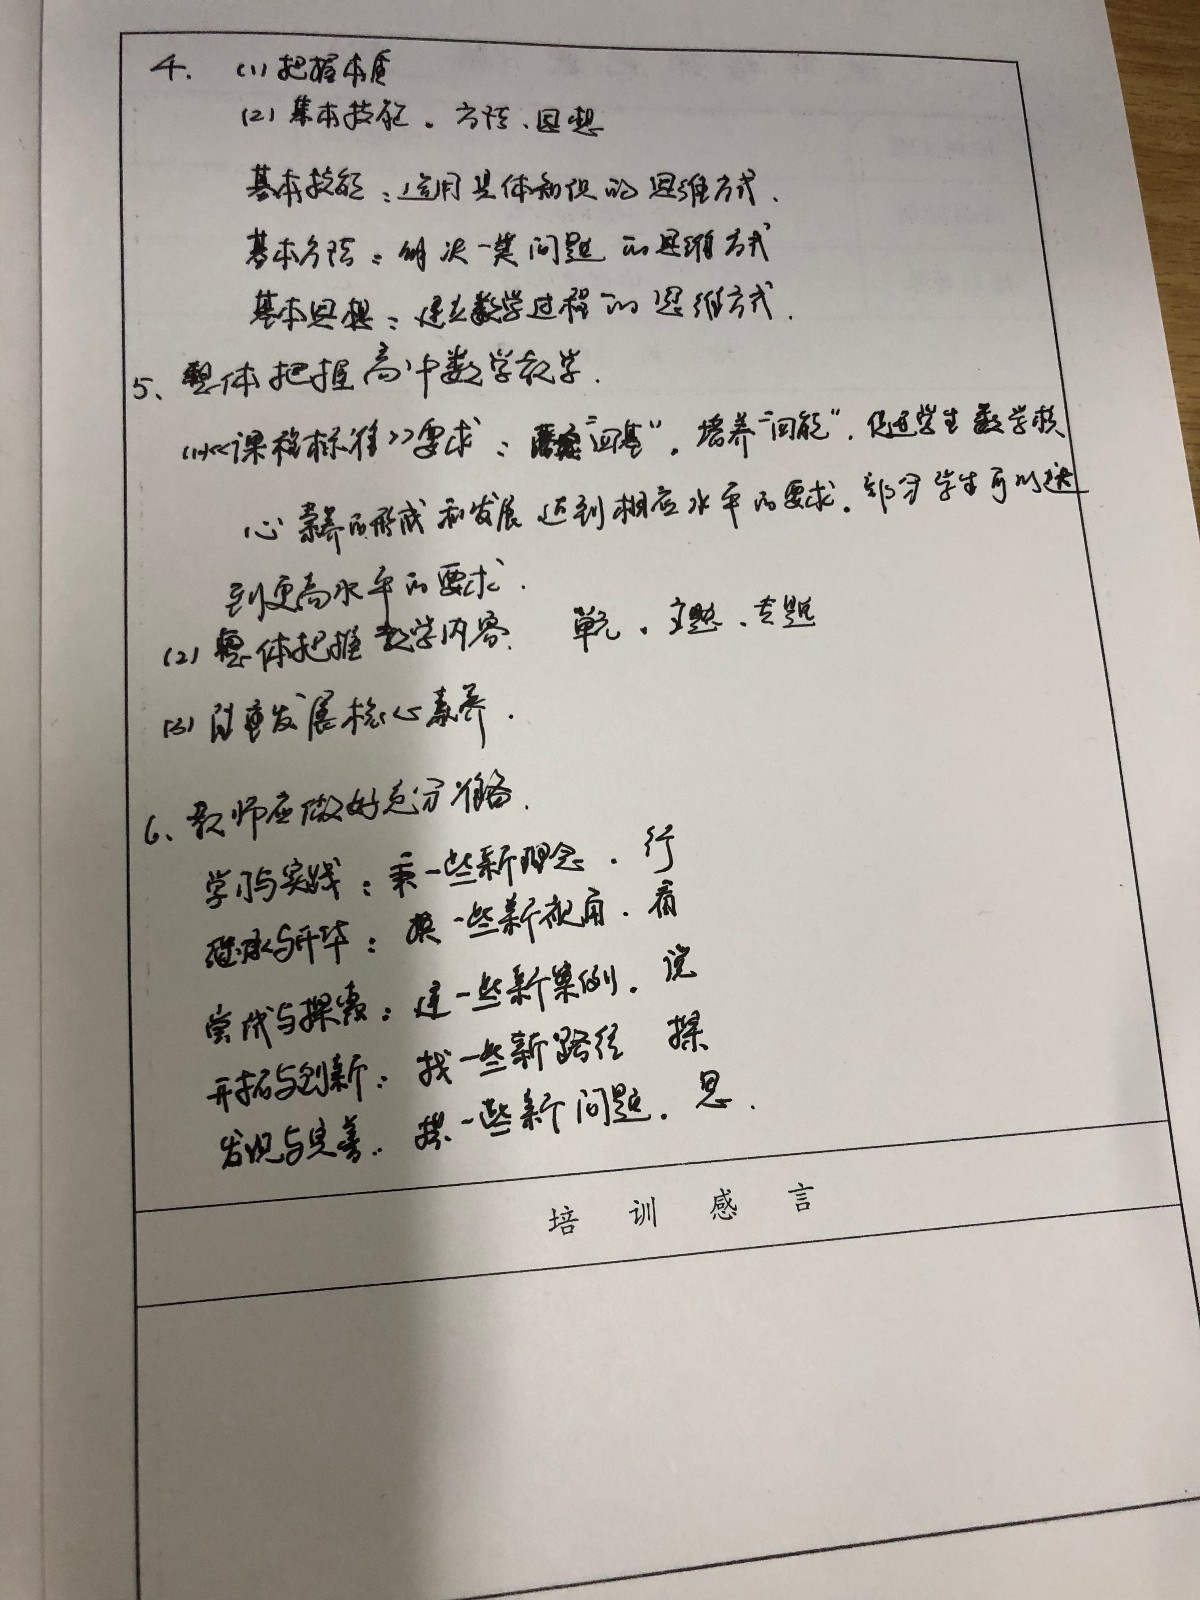 4. (1)把握本质
(2)基本技能、方法、思想
基本技能：运用具体知识的思维方式.
基本方法：解决一类问题的思维方式
基本思想：建立数学过程的思维方式.
5、整体把握高中数学教学.
(1)《课程标准》要求：落实“四基”，培养“四能”，促进学生数学核
心素养的形成和发展 达到相应水平的要求，部分学生可以达
到更高水平的要求.
(2)整体把握数学内容. 单元、主题、专题
(3)注重发展核心素养.
6、教师应做好充分准备.
学习与实践：秉一些新理念. 行
继承与升华：换一些新视角. 看
尝试与探索：建一些新案例. 说
开拓与创新：找一些新路径 探
发现与完善. 探一些新问题. 思.
培 训 感 言